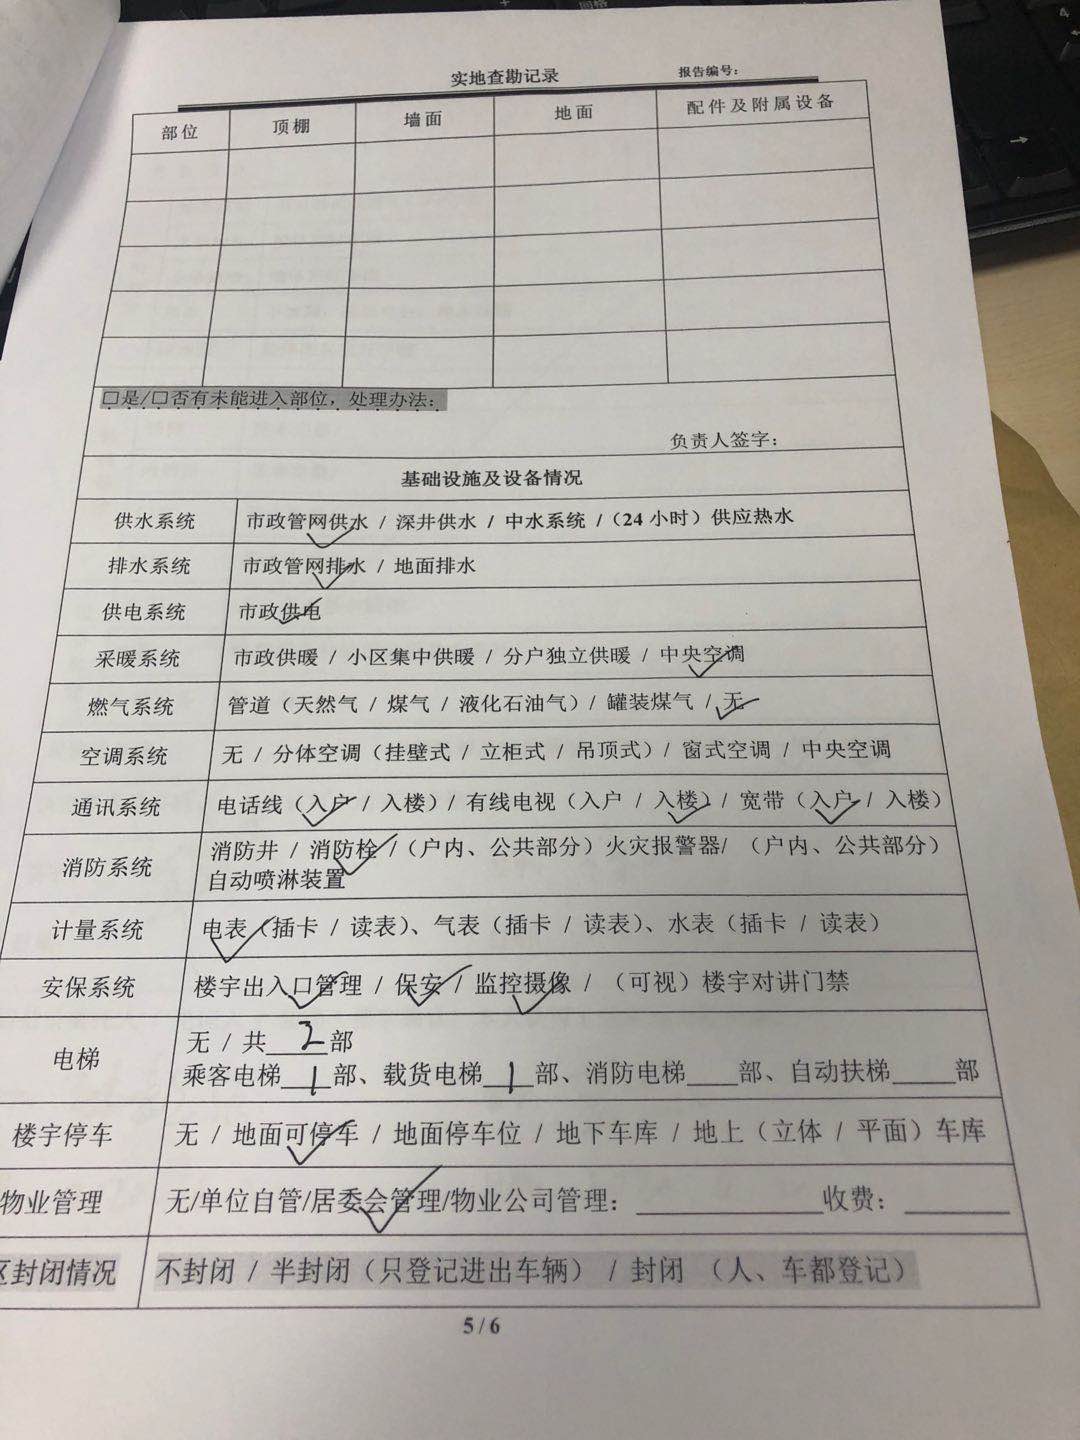 实地查勘记录 报告编号：
部位 顶棚 墙面 地面 配件及附属设备
□是/□否有未能进入部位，处理办法：
负责人签字：
基础设施及设备情况
供水系统 市政管网供水 / 深井供水 / 中水系统 /（24 小时）供应热水
排水系统 市政管网排水 / 地面排水
供电系统 市政供电
采暖系统 市政供暖 / 小区集中供暖 / 分户独立供暖 / 中央空调
燃气系统 管道（天然气 / 煤气 / 液化石油气）/ 罐装煤气 / 无
空调系统 无 / 分体空调（挂壁式 / 立柜式 / 吊顶式）/ 窗式空调 / 中央空调
通讯系统 电话线（入户 / 入楼）/ 有线电视（入户 / 入楼）/ 宽带（入户 / 入楼）
消防系统 消防井 / 消防栓 /（户内、公共部分）火灾报警器/ （户内、公共部分）
自动喷淋装置
计量系统 电表（插卡 / 读表）、气表（插卡 / 读表）、水表（插卡 / 读表）
安保系统 楼宇出入口管理 / 保安 / 监控摄像 / （可视）楼宇对讲门禁
电梯 无 / 共 2 部
乘客电梯 1 部、载货电梯 1 部、消防电梯____部、自动扶梯_____部
楼宇停车 无 / 地面可停车 / 地面停车位 / 地下车库 / 地上（立体 / 平面）车库
物业管理 无/单位自管/居委会管理/物业公司管理：______________收费：________
区封闭情况 不封闭 / 半封闭（只登记进出车辆） / 封闭 （人、车都登记）
5 / 6